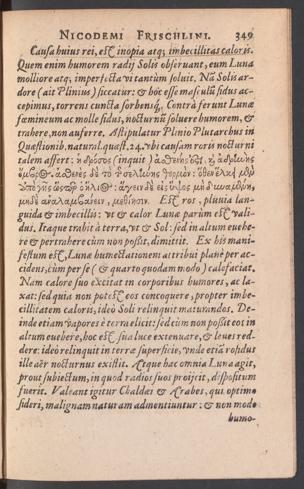 NICODEMI FRISCHLINI. 349
Causa huius rei, est inopia atq; imbecillitas caloris.
Quem enim humorem radij Solis obseruant, eum Luna
molliore atq; imperfecta vi tantùm soluit. Nã Solis ar-
dore (ait Plinius) siccatur: & hoc esse masculũ sidus ac-
cepimus, torrens cuncta sorbensq́;. Contrà ferunt Lunæ
fœmineum ac molle sidus, nocturnũ soluere humorem, &
trahere, non auferre. Astipulatur Plenio Plutarchus in
Quæstionib. natural. quæst. 24. vbi causam roris nocturni
talem assert: ἡ δρόσος (inquit) ἀσθενής
ἀσθενὲς δὲ τὸ
ὑπὸ γῆς
μηδὲ ἀναλαμβάνειν, μεθίησιν. Est ros, pluuia lan-
guida & imbecillis: vt & calor Lunæ parùm est vali-
dus. Itaque trahit à terra, vt & Sol: sed in altum euehe-
re & pertrahere cùm non possit, dimittit. Ex his mani-
festum est, Lunæ humectationem attribui planè per ac-
cidens, cùm per se (& quarto quodam modo) calefaciat.
Nam calore suo excitat in corporibus humores, ac la-
xat: sed quia non potest eos concoquere, propter imbe-
cillitatem caloris, ideò Soli relinquit maturandos. De-
inde etiam vapores è terra elicit: sed cùm non possit eos in
altum euehere, hoc est, sua luce extenuare, & leues red-
dere: ideò relinquit in terræ superficie, vnde etiã rosidus
ille aër nocturnus existit. Atque hæc omnia Luna agit,
prout subiectum, in quod radios suos proijcit, dispositum
fuerit. Valeant igitur Chaldæi & Arabes, qui optimo
sideri, malignam naturam adinentiuntur: & non modo
humo-